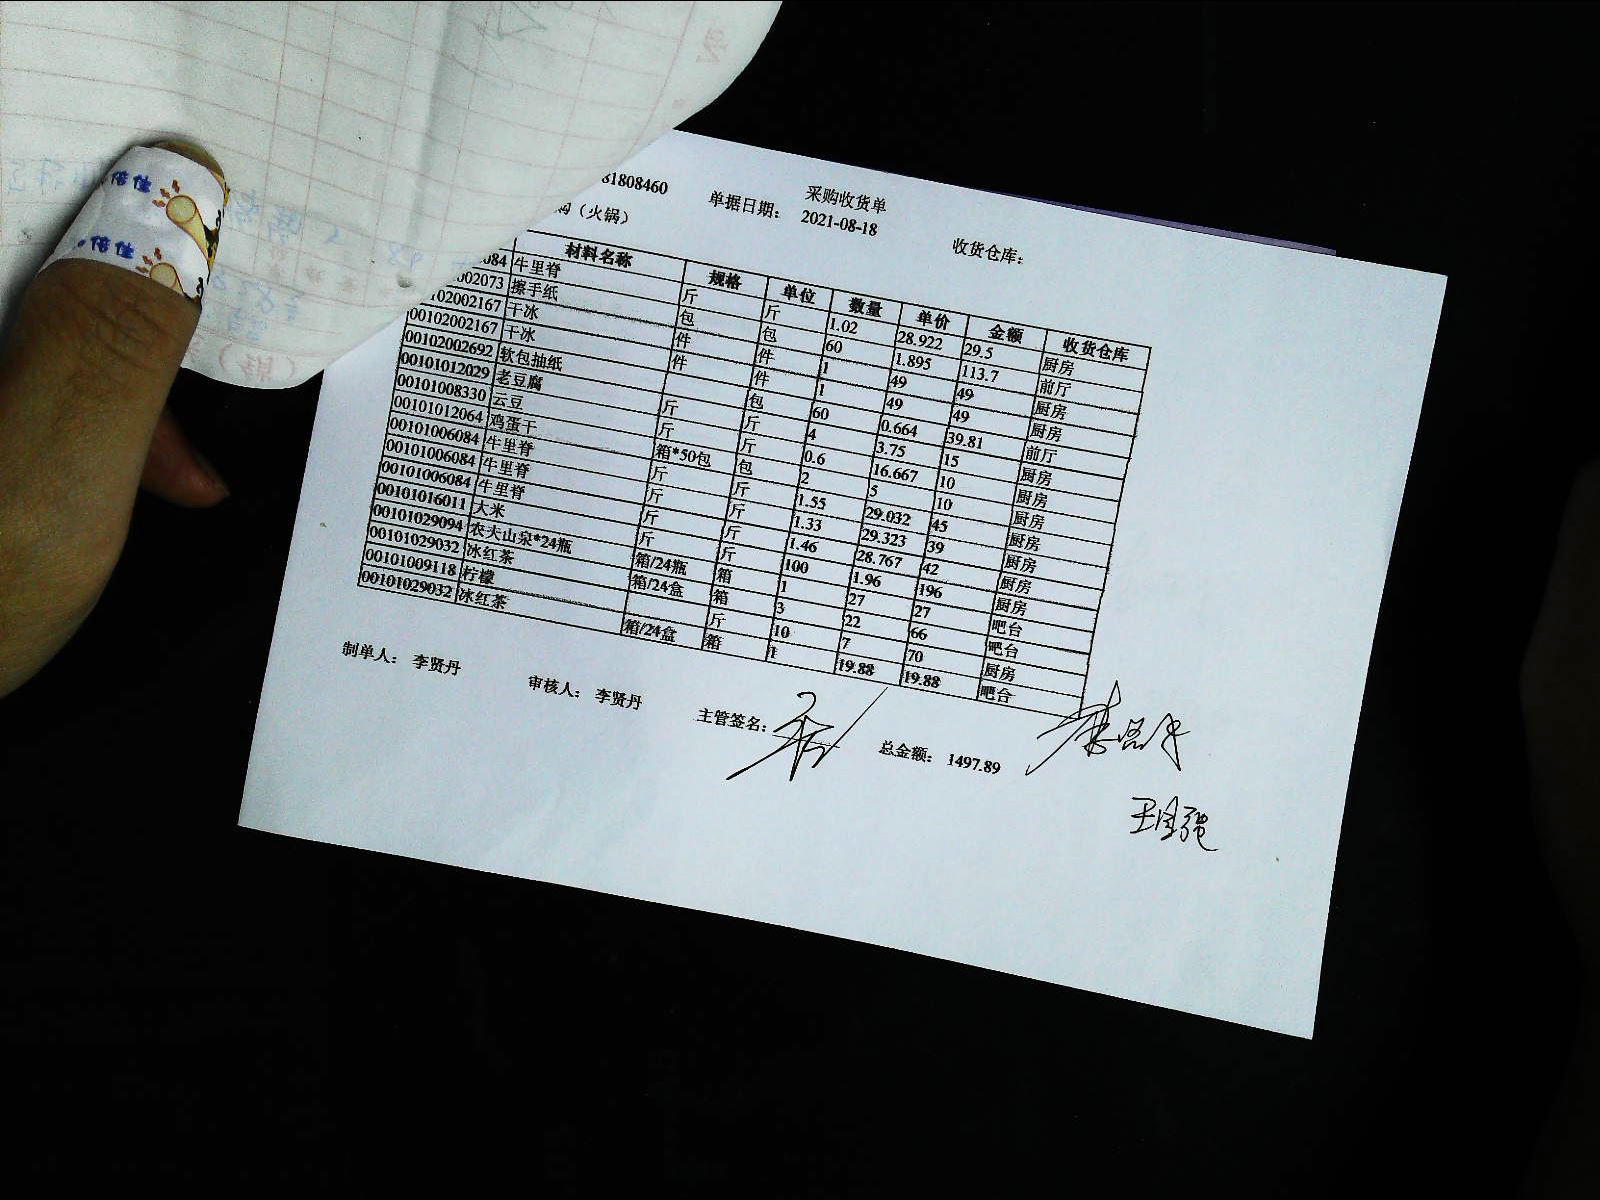 采购收货单
81808460 单据日期： 2021-08-18 收货仓库：
（火锅）
材料名称 规格 单位 数量 单价 金额 收货仓库
084 牛里脊 斤 斤 1.02 28.922 29.5 厨房
002073 擦手纸 包 包 60 1.895 113.7 前厅
102002167 干冰 件 件 1 49 49 厨房
00102002167 干冰 件 件 1 49 49 厨房
00102002692 软包抽纸 包 60 0.664 39.81 前厅
00101012029 老豆腐 斤 斤 4 3.75 15 厨房
00101008330 云豆 斤 斤 0.6 16.667 10 厨房
00101012064 鸡蛋干 箱*50包 包 2 5 10 厨房
00101006084 牛里脊 斤 斤 1.55 29.032 45 厨房
00101006084 牛里脊 斤 斤 1.33 29.323 39 厨房
00101006084 牛里脊 斤 斤 1.46 28.767 42 厨房
00101016011 大米 斤 斤 100 1.96 196 厨房
00101029094 农夫山泉*24瓶 箱/24瓶 箱 1 27 27 吧台
00101029032 冰红茶 箱/24盒 箱 3 22 66 吧台
00101009118 柠檬 斤 10 7 70 厨房
00101029032 冰红茶 箱/24盒 箱 1 19.88 19.88 吧台
制单人： 李贤丹 审核人： 李贤丹 主管签名： 总金额： 1497.89
倍佳
倍佳